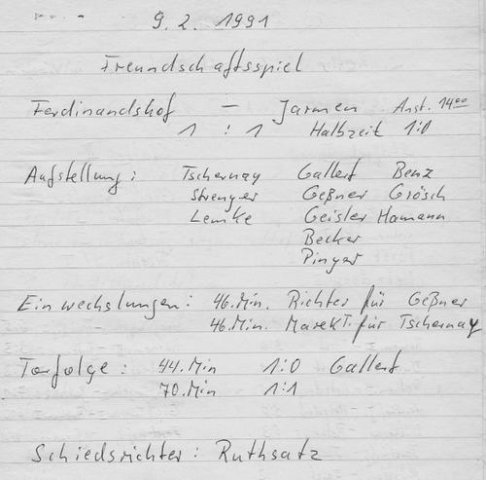 9. 2. 1991
Freundschaftsspiel
Ferdinandshof - Jarmen Anst. 14⁰⁰
1 : 1 Halbzeit 1:0
Aufstellung: Tschernay Gallert Benz
Strenger Geßner Grösch
Lemke Geisler Hamann
Becker
Pinger
Einwechslungen: 46. Min. Richter für Geßner
46. Min. Marek T. für Tschernay
Torfolge: 44. Min 1:0 Gallert
70. Min 1:1
Schiedsrichter: Ruthsatz